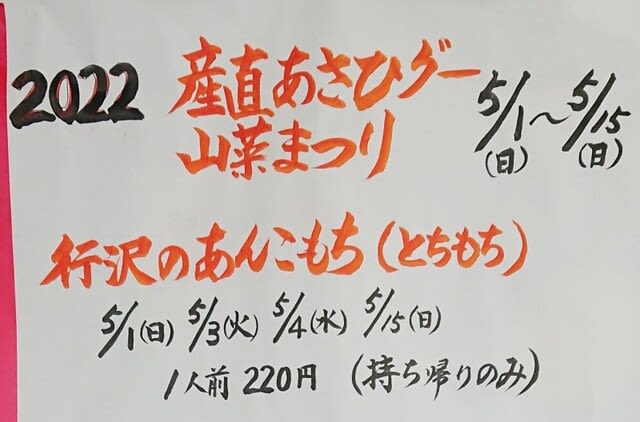 2022 産直あさひグー 5/1〜5/15
山菜まつり (日) (日)
行沢のあんこもち(とちもち)
5/1(日) 5/3(火) 5/4(水) 5/15(日)
1人前 220円 (持ち帰りのみ)